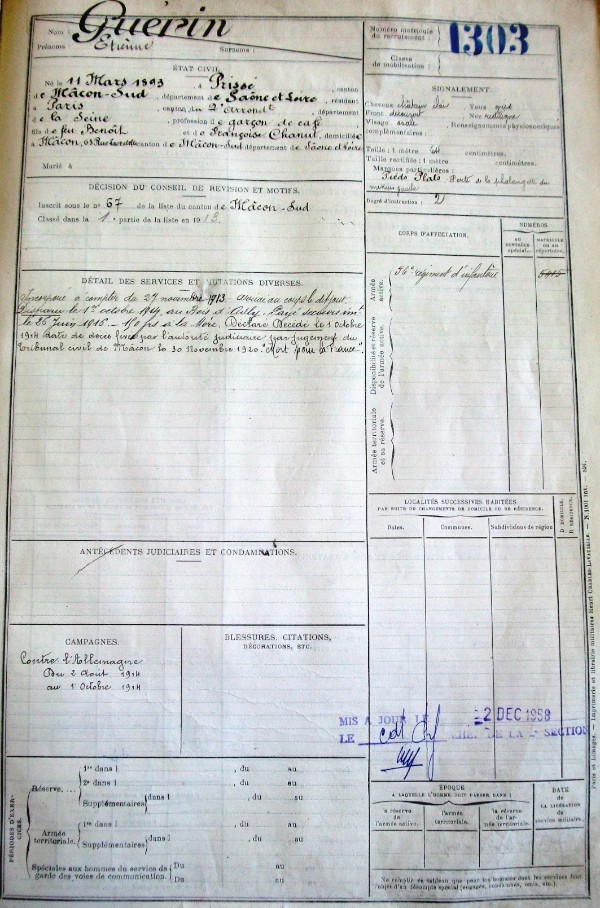 Nom : Guérin
Prénoms : Etienne Surnoms :
Numéro matricule du recrutement : 1303
Classe de mobilisation :
ÉTAT CIVIL.
Né le 11 Mars 1893, à Prissé, canton
de Mâcon-Sud, département de Saône et Loire, résidant
à Paris, canton du 2e Arrondt, département
de la Seine, profession de garçon de café
fils de feu Benoît et de Françoise Chanut, domiciliés
à Mâcon, canton de Mâcon-Sud département de Saône et Loire
Marié à
SIGNALEMENT.
Cheveux châtain clair Yeux
Front découvert Nez rectiligne
Visage ovale Renseignements physionomiques
complémentaires :
Taille : 1 mètre centimètres.
Taille rectifiée : 1 mètre centimètres.
Marques particulières :
Pieds Plats. Perte de la phalangette du
Degré d'instruction : 2
DÉCISION DU CONSEIL DE RÉVISION ET MOTIFS.
Inscrit sous le no 67 de la liste du canton de Mâcon-Sud
Classé dans la 1e partie de la liste en 1913.
CORPS D'AFFECTATION.
NUMÉROS
AU CONTRÔLE SPÉCIAL.
MATRICULE OU AU RÉPERTOIRE.
Armée active.
56e régiment d'infanterie
Disponibilité et réserve de l'armée active.
Armée territoriale et sa réserve.
DÉTAIL DES SERVICES ET MUTATIONS DIVERSES.
Incorporé à compter du 27 novembre 1913 arrivé au corps le dit jour.
Disparu le 1er octobre 1914 au Bois d'Ailly. Payé secours imt
le 26 Juin 1915 - 150 frs à la Mère. Déclaré Décédé le 1 Octobre
1914 date de décès fixé par l'autorité judiciaire par jugement du
Tribunal civil de Mâcon le 30 Novembre 1920. "Mort pour la France".
LOCALITÉS SUCCESSIVES HABITÉES
PAR SUITE DE CHANGEMENTS DE DOMICILE OU DE RÉSIDENCE.
Dates. Communes. Subdivisions de région
D. DOMICILE.
R. RÉSIDENCE.
ANTÉCÉDENTS JUDICIAIRES ET CONDAMNATIONS.
CAMPAGNES.
Contre l'Allemagne
Du 2 Août 1914
au 1 Octobre 1914
BLESSURES, CITATIONS,
DÉCORATIONS, ETC.
MIS A JOUR LE 2 DEC 1958
LE CHEF DE LA 2e SECTION
PÉRIODES D'EXERCICES.
Réserve.
1re dans l , du au
2e dans l , du au
Supplémentaires dans l , du au
Armée territoriale.
1re dans l , du au
Supplémentaires dans l , du au
Spéciales aux hommes du service de garde des voies de communication. Du au
Du au
ÉPOQUE
A LAQUELLE L'HOMME DOIT PASSER DANS :
la réserve de l'armée active.
l'armée territoriale.
la réserve de l'armée territoriale.
DATE
DE LA LIBÉRATION DU SERVICE MILITAIRE.
Ne remplir ce tableau que pour les hommes dont les services font
l'objet d'un décompte spécial (engagés, condamnés, omis, etc.).
Paris et Limoges. — Imprimerie et librairie militaires Henri CHARLES-LAVAUZELLE.